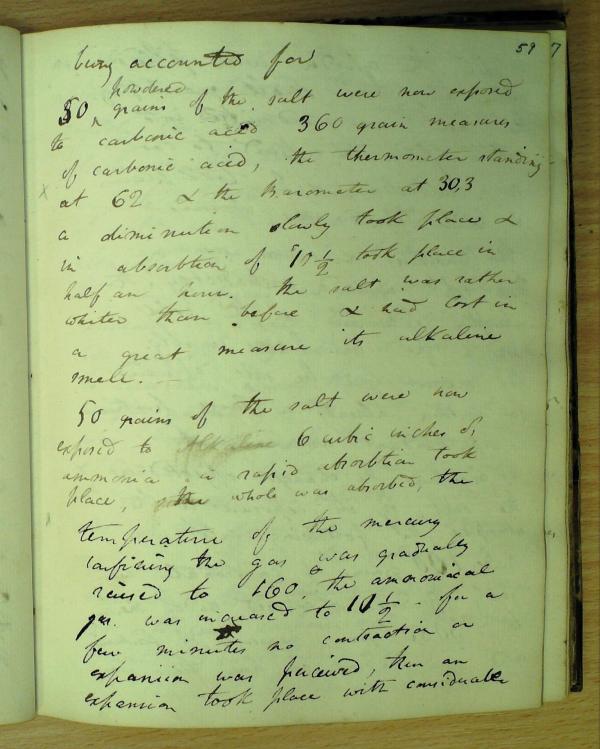 59 7
being accounted for
powdered
50 ^ grains of the salt were now exposed
to carbonic acid 360 grain measures
of carbonic acid, the thermometer standing
at 62 & the Barometer at 30,3
a diminution slowly took place &
in absorbtion of 10 ½ took place in
half an hour. the salt was rather
whiter than before & had lost in
a great measure its alkaline
smell. —
50 grains of the salt were now
exposed to Alkaline 6 cubic inches of
ammonia a rapid absorbtion took
place, the whole was absorbed, the
temperature of the mercury
confining the gas was gradually
raised to 160, & the ammoniacal
gas. was increased to 10 ½ - for a
few minutes no contraction or
expansion was perceived, then an
expansion took place with considerable